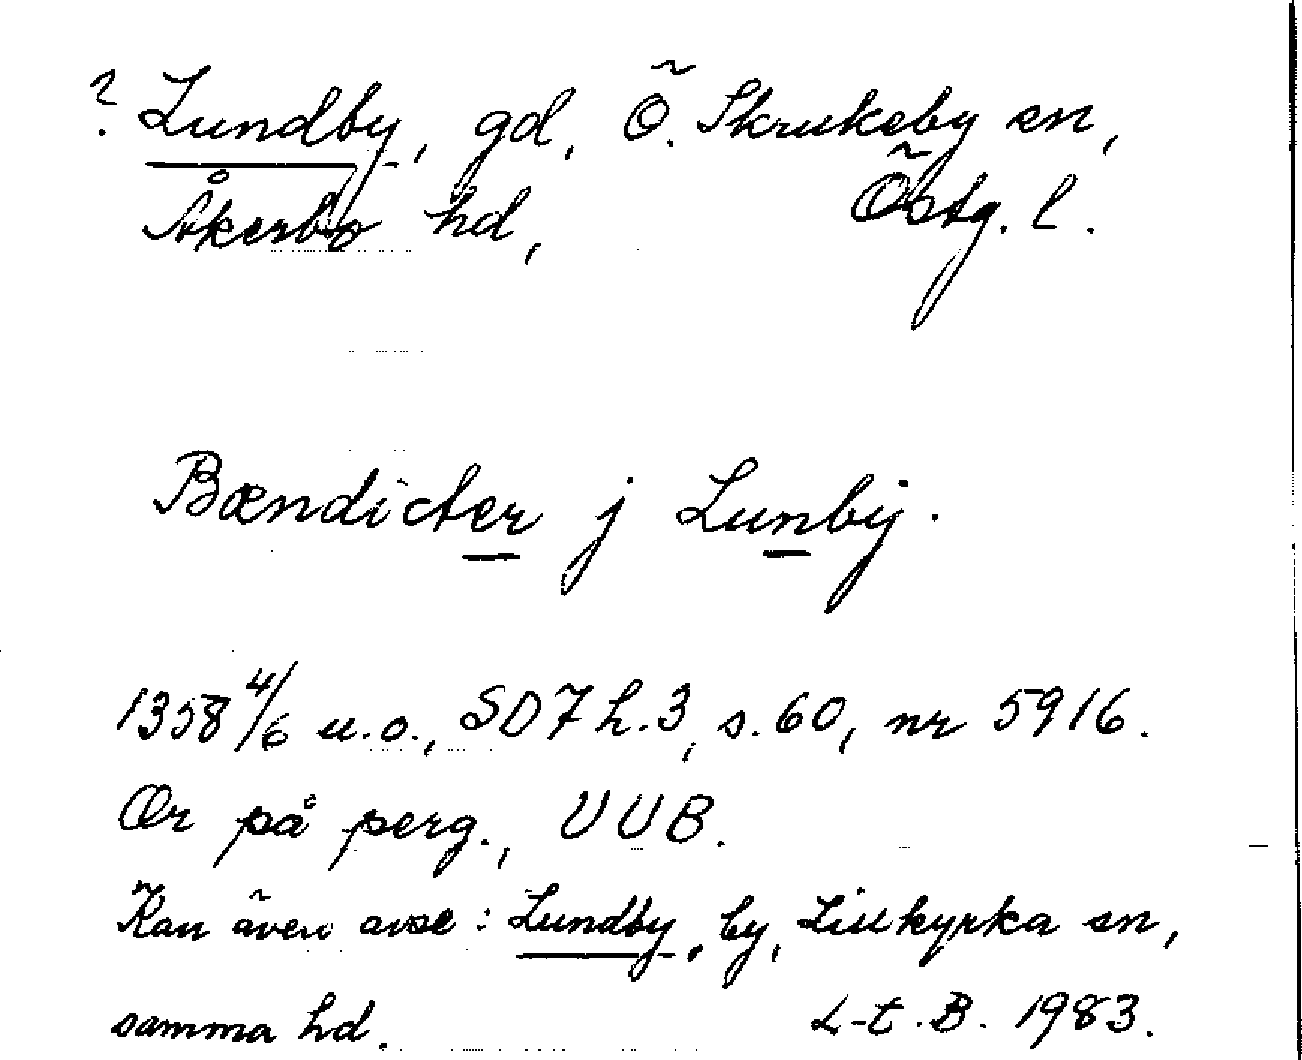 ? Lundby, gd, Ö. Skrukeby sn,
Åkerbo hd, Östg. l.
Bændicter j Lunby.
1358 4/6 u.o., SD7 h.3, s.60, nr 5916.
Or på perg., UUB.
Kan även avse: Lundby, by, Lillkyrka sn,
samma hd. L-t.B. 1983.